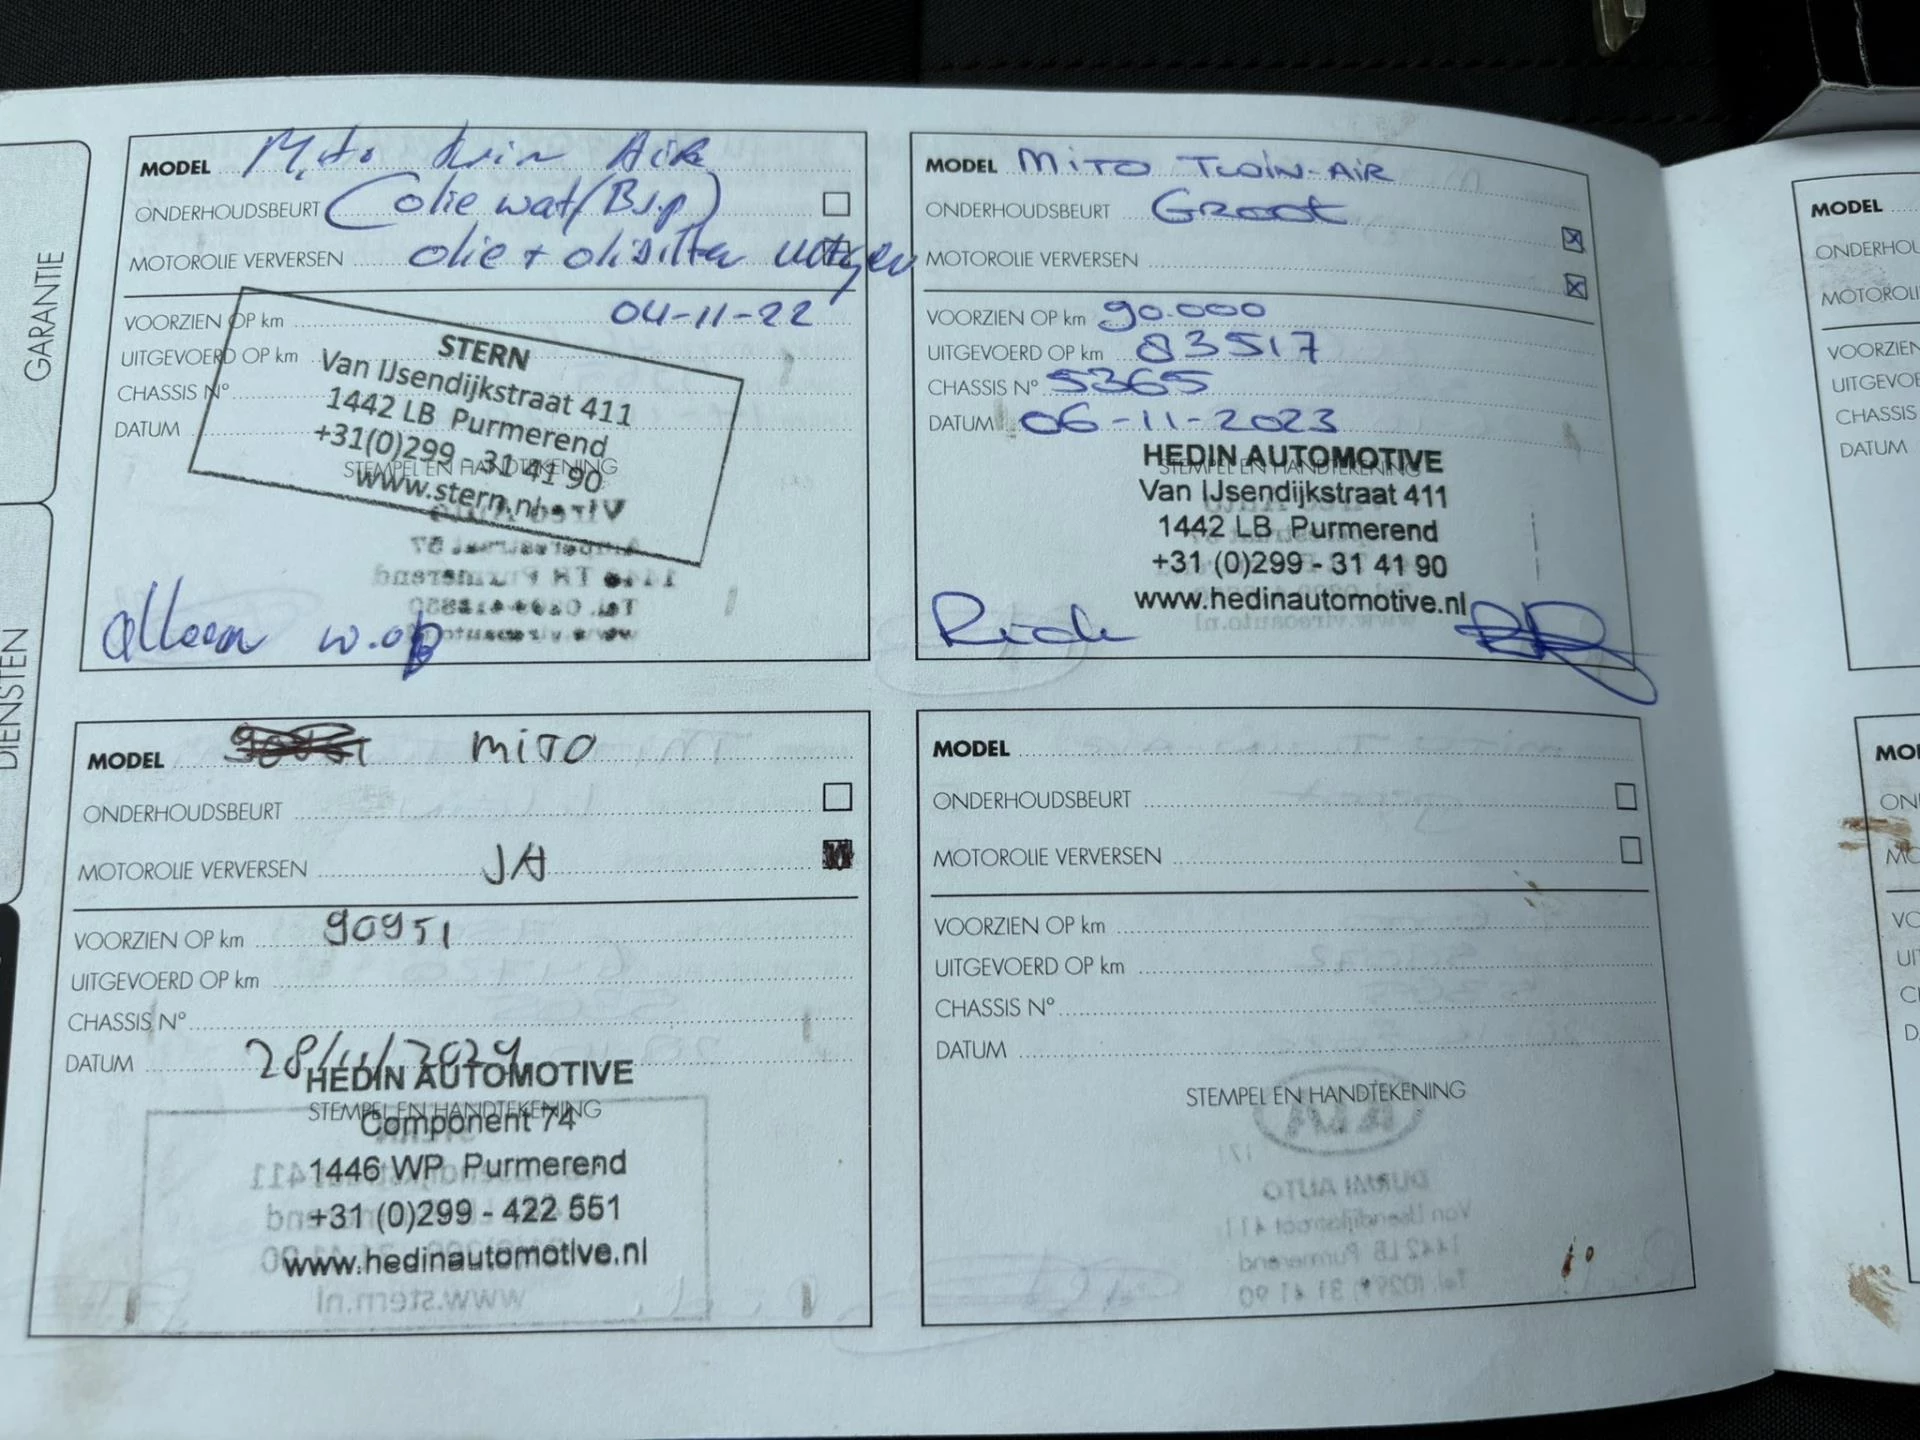 GARANTIE
DIENSTEN
MODEL Mito Twin Air
ONDERHOUDSBEURT (olie wat/Bsp)
MOTOROLIE VERVERSEN olie + oliefilter
VOORZIEN OP km 04-11-22
UITGEVOERD OP km
CHASSIS N°
DATUM
STEMPEL EN HANDTEKENING
STERN
Van IJsendijkstraat 411
1442 LB Purmerend
+31(0)299 - 31 41 90
www.stern.nl
alleen w.op
MODEL MITO TWIN-AIR
ONDERHOUDSBEURT Groot
MOTOROLIE VERVERSEN
VOORZIEN OP km 90.000
UITGEVOERD OP km 83517
CHASSIS N° 5365
DATUM 06-11-2023
STEMPEL EN HANDTEKENING
HEDIN AUTOMOTIVE
Van IJsendijkstraat 411
1442 LB Purmerend
+31 (0)299 - 31 41 90
www.hedinautomotive.nl
MODEL MITO
ONDERHOUDSBEURT
MOTOROLIE VERVERSEN JA
VOORZIEN OP km 90951
UITGEVOERD OP km
CHASSIS N°
DATUM 28/11/2024
STEMPEL EN HANDTEKENING
HEDIN AUTOMOTIVE
Component 74
1446 WP Purmerend
+31 (0)299 - 422 551
www.hedinautomotive.nl
MODEL
ONDERHOUDSBEURT
MOTOROLIE VERVERSEN
VOORZIEN OP km
UITGEVOERD OP km
CHASSIS N°
DATUM
STEMPEL EN HANDTEKENING
MODEL
ONDERHOU
MOTOROLI
VOORZIEN
UITGEVOE
CHASSIS
DATUM
MO
ON
MO
VO
UI
C
D